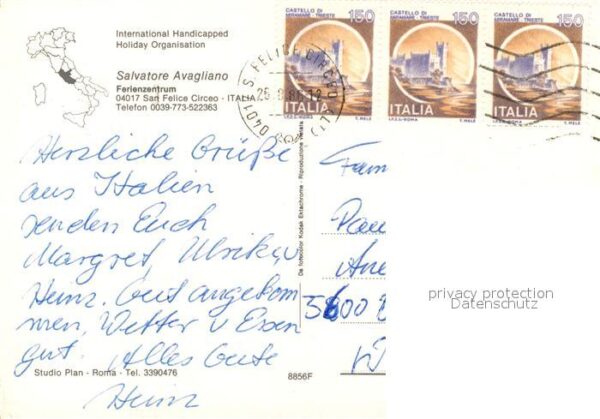 International Handicapped
Holiday Organisation
Salvatore Avagliano
Ferienzentrum
04017 San Felice Circeo - ITALIA
Telefon 0039-773-522363
CASTELLO DI
MIRAMARE - TRIESTE
150
ITALIA
I.P.Z.S.-ROMA
T. MELE
CASTELLO DI
MIRAMARE - TRIESTE
150
ITALIA
I.P.Z.S.-ROMA
T. MELE
CASTELLO DI
MIRAMARE - TRIESTE
150
ITALIA
I.P.Z.S.-ROMA
T. MELE
S. FELICE CIRCEO (LT)
Herzliche Grüße
aus Italien
senden Euch
Margret, Ulrike u
Heinz. Gut angekom
men, Wetter u Essen
gut. Alles Gute
Heinz
Da fotocolor Kodak Ektachrome - Riproduzione vietata
Fam
Pau
5600
privacy protection
Datenschutz
Studio Plan - Roma - Tel. 3390476
8856F